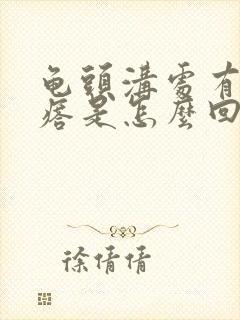 龟頭溝處有
痞是怎麼回
徐倩倩